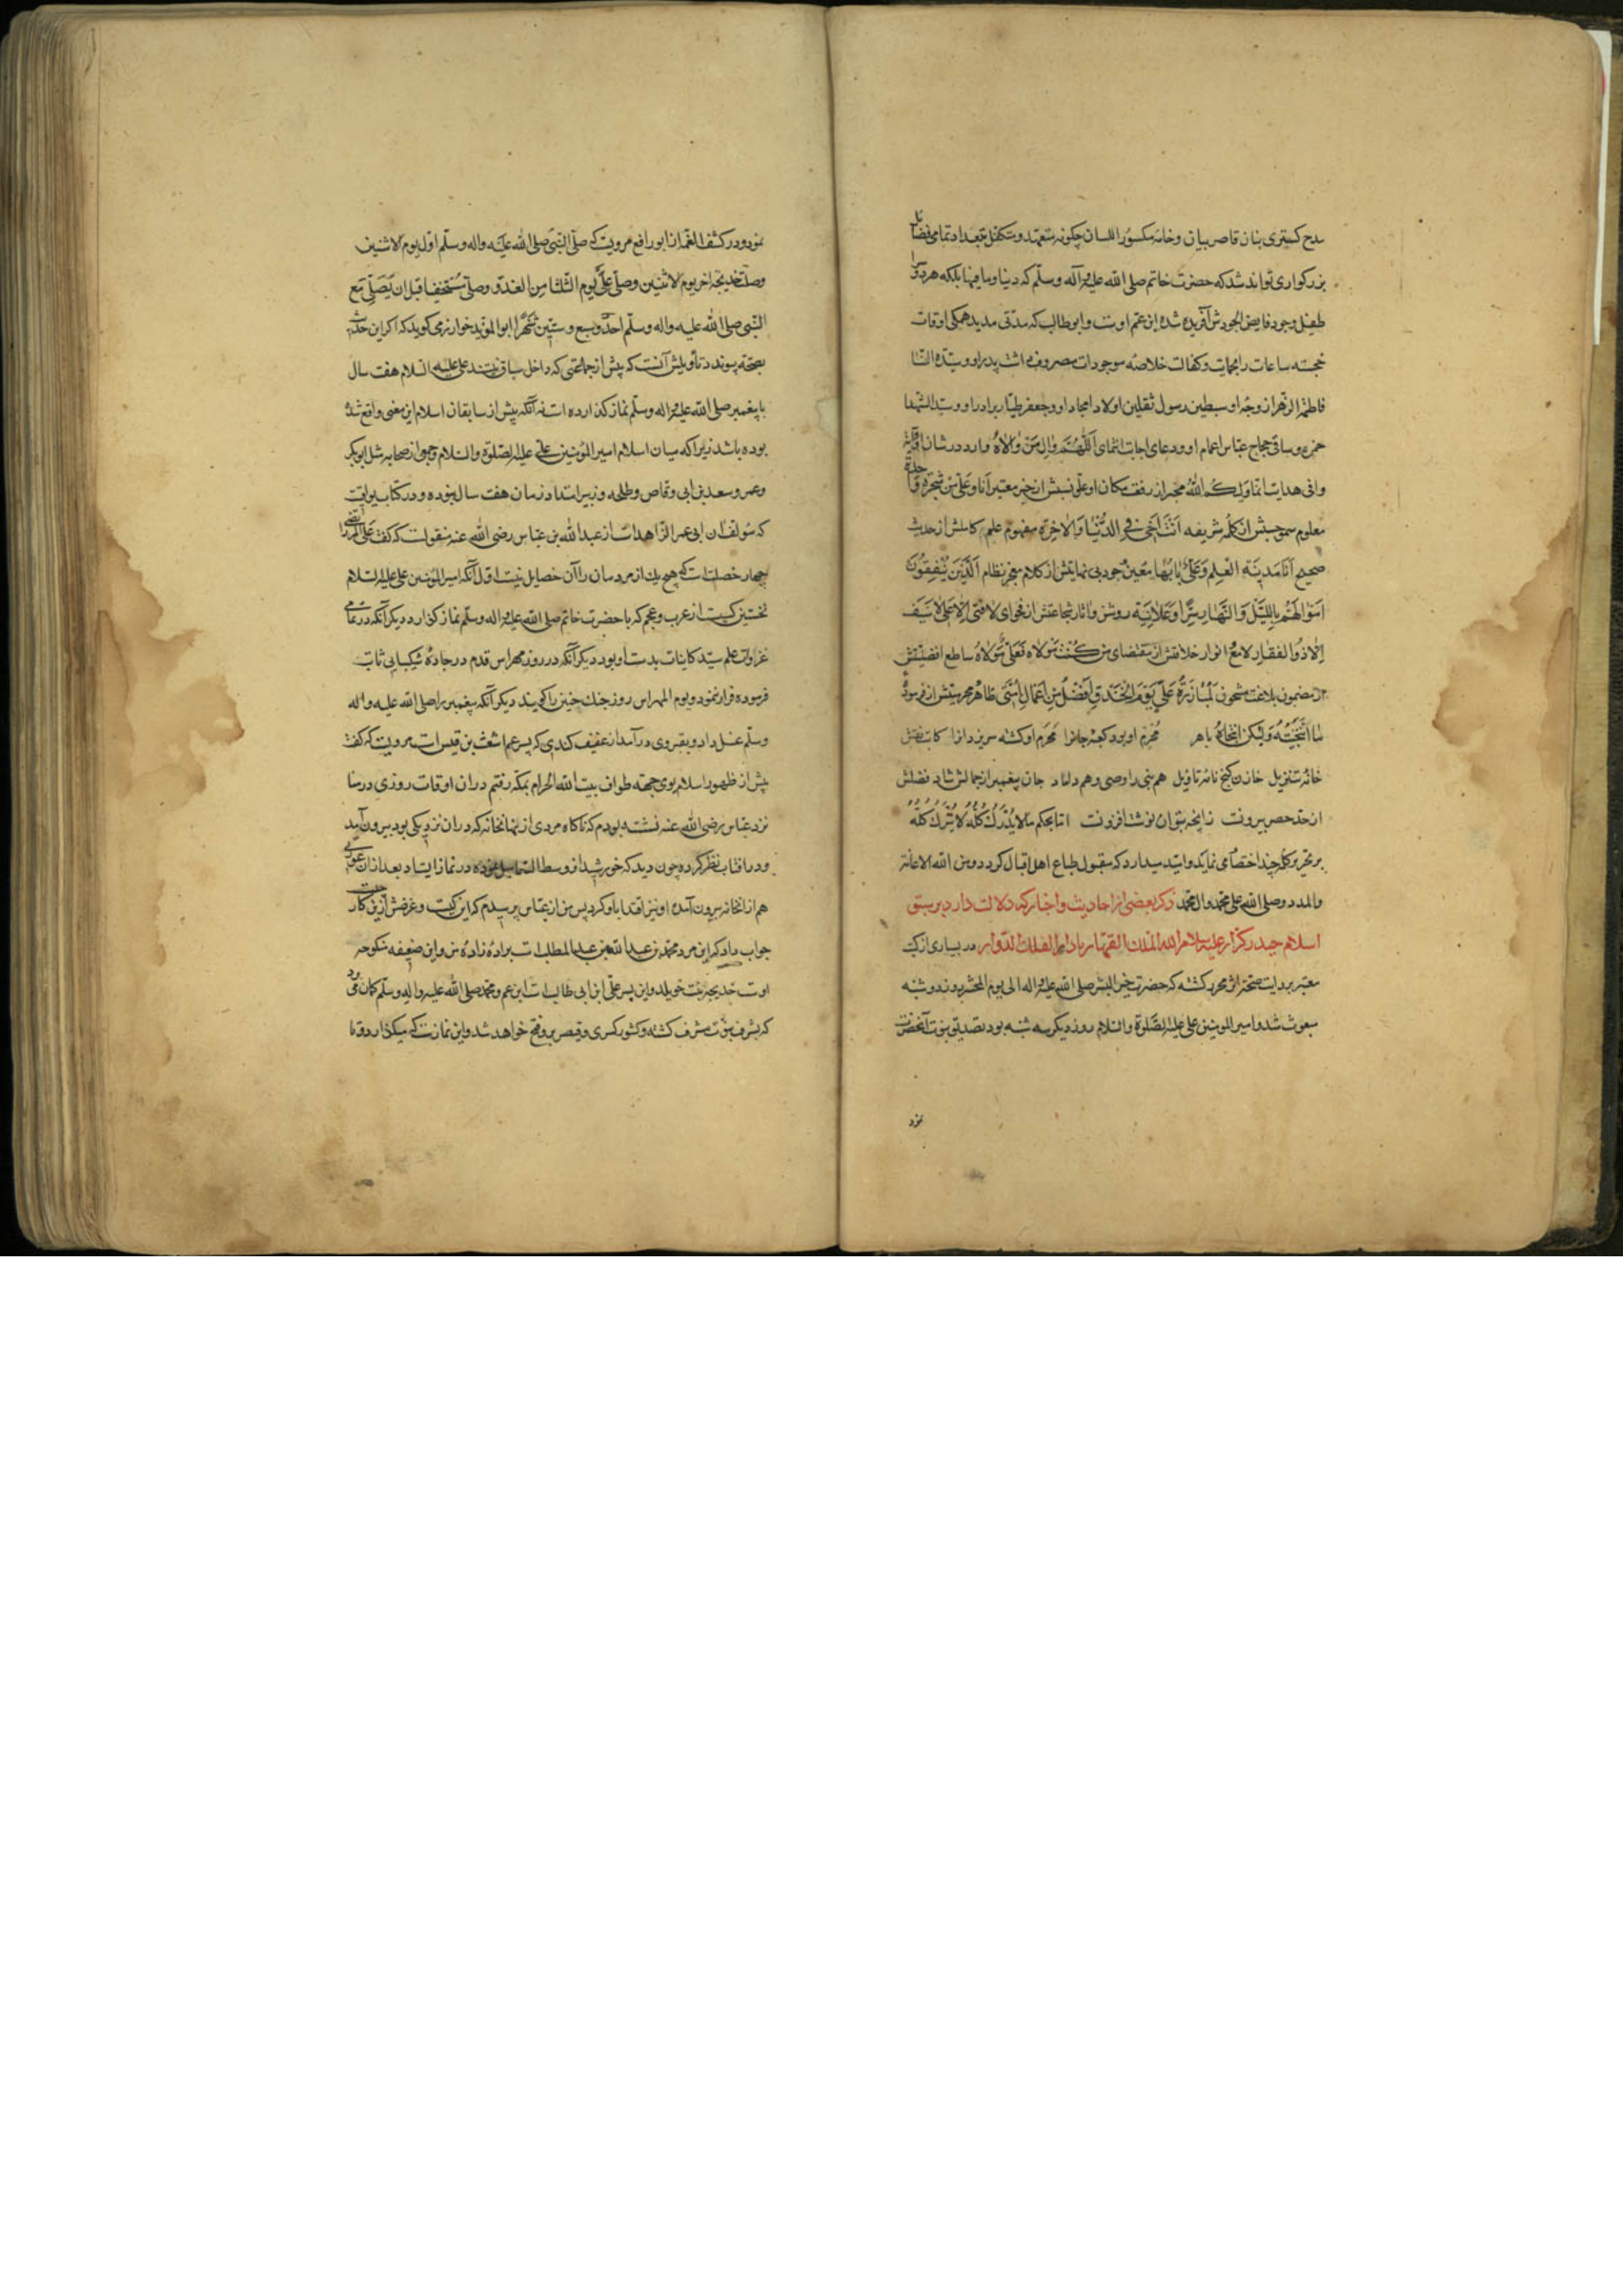 مدح کستری بنان قاصر بیان و خامه مکسور اللسان چکونه متعهد و متکفل تعداد تمامی فضایل
بزرکواری تواند شد که حضرت خاتم صلی الله علیه وآله وسلم که دنیا و ما فیها بلکه هر دو سرا
طفیل وجود فایض الجودش آفریده شده ابن عم اوست و ابوطالب که مدتی مدید همکی اوقات
خجسته ساعات را بحمایت و کفالت خلاصه موجودات مصروف داشت پدر او و سیدة النسا
فاطمة الزهرا زوجه او و سبطین رسول ثقلین اولاد امجاد او و جعفر طیار برادر او و سید الشهدا
حمزه و ساقی حجاج عباس اعمام او و دعای اجابت انتمای اَللّهُمَّ وٰالِ مَنْ وٰالاهُ وارد در شان او آیة
وافی هدایت انما ولیکم الله مخبر از رفعت مکان او علو نسبش از خبر معتبر انا و علی من شجرة واحدة
معلوم سمو حسبش از کلمه شریفه اَنْتَ اَخی فی الدُّنْیا وَالاٰخِرَةِ مفهوم علم کاملش از حدیث
صحیح اَنَا مَدینَةُ العِلمِ وَعَلیٌّ بابُها مبین جود بی نهایتش از کلام معجز نظام اَلَّذینَ یُنْفِقُونَ
اَمْوالَهُمْ بِاللَّیْلِ وَالنَّهارِ سِرًّا وَعَلانِیَةً روشن و اثار شجاعتش از فحوای لا فتی اِلّا عَلی لا سَیْفَ
اِلّا ذُوالفقار لامع انوار خلافتش از مقتضای من کُنْتُ مَوْلاه فَعَلیٌّ مَوْلاهُ ساطع افضلیتش
از مضمون بلاغت مشحون لَمُبارَزَةُ عَلیٍّ یَوْمَ الخَنْدَقِ اَفْضَلُ مِنْ اَعْمالِ اُمَّتی ظاهر محرمیتش از فرموده
ما اَنْتَجَیْتُهُ وَلکِنَّ اللهَ انْتَجاهُ باهر محرم او بود کعبه جانرا محرم او کشته سر یزدانرا کاتب نقش
خانه تنزیل خازن کنج نامه تاویل هم نبی را وصی و هم داماد جان پیغمبر از جمالش شاد فضلش
از حد حصر بیرونست زانچه بتوان نوشت افزونست اما بحکم ما لا یُدْرَكُ كُلُّهُ لا یُتْرَكُ كُلُّهُ
بر تحریر کلمه چند اختصار می نماید و امید میدارد که مقبول طباع اهل اقبال کردد و من الله الاعانة
والمدد وصلی الله علی محمد وآل محمد ذکر بعضی از احادیث و اخبار که دلالت دارد بر سبق
اسلام حیدر کرار علیه سلام الله الملك القهار مادام الفلك الدوار در بسیاری از کتب
معتبر بروایت صحت اثر محرر کشته که حضرت خیر البشر صلی الله علیه وآله الی یوم المحشر روز دوشنبه
مبعوث شد و امیر المومنین علی علیه الصلوة والسلام روز دیکر سه شنبه بود تصدیق نبوت آنحضرت
نمود
نمود و در کشف الغمه از ابو رافع مرویست که صلی النبی صلی الله علیه واله وسلم اول یوم الاثنین
وصلت خدیجة اخر یوم الاثنین وصلی علی یوم الثلثا من الغد وصلی مستخفیا قبل ان یصلی مع
النبی صلی الله علیه واله وسلم احد و سبع وستین شهرا ابو الموید خوارزمی کوید که اکر این حدیث
بصحت پیوندد تأویلش آنست که پیش از جماعتی که داخل سباق نیستند علی علیه السلام هفت سال
با پیغمبر صلی الله علیه واله وسلم نماز کذارده است نه آنکه پیش از سابقان اسلام این معنی واقع شده
بوده باشد زیرا که میان اسلام امیر المؤمنین علی علیه الصلوة والسلام و جمعی از صحابه مثل ابوبکر
و عمر و سعد بن ابی وقاص و طلحه و زبیر امتداد زمان هفت سال نبوده و در کتاب یواقیت
که مؤلف آن ابی عمر الزاهد است از عبد الله بن عباس رضی الله عنه منقولست که کفت علی المرتضی را
چهار خصلت است که هیچ یك از مردمان را آن خصایل نیست اول آنکه امیر المؤمنین علی علیه السلام
نخستین کسیست از عرب و عجم که با حضرت خاتم صلی الله علیه واله وسلم نماز کزارد دیکر آنکه در تمامی
غزوات علم سید کاینات بدست او بود دیکر آنکه در روز مهراس قدم در جاده شکیبایی ثابت
فرموده قرار نمود و یوم المهراس روز جنك حنین را کویند دیکر آنکه پیغمبر را صلی الله علیه واله
وسلم غسل داد و بقبر وی در آمد از عفیف کندی که پسر عم اشعث بن قیس است مرویست که کفت
پیش از ظهور اسلام بوی جهة طواف بیت الله الحرام بمکه رفتم در ان اوقات روزی در منا
نزد عباس رضی الله عنه نشسته بودم که ناکاه مردی از نهانخانه که در ان نزدیکی بود بیرون آمد
و در افتاب نظر کرده چون دید که خورشید از وسط السما میل نموده در نماز ایستاد بعد از ان عورتی
هم از انخانه بیرون آمده او نیز اقتدا باو کرد پس من از عباس پرسیدم که این کیست و غرضش ازین کار چیست
جواب داد که این مرد محمد بن عبد الله بن عبد المطلب است برادر زاده من و این ضعیفه منکوحه
اوست خدیجه بنت خویلد و این پسر علی ابن ابی طالب است ابن عم و محمد صلی الله علیه واله وسلم کمان می برد
که بشرف نبوت مشرف کشته و کشور کسری و قیصر برو فتح خواهد شد و این نمازست که میکذارد و تا